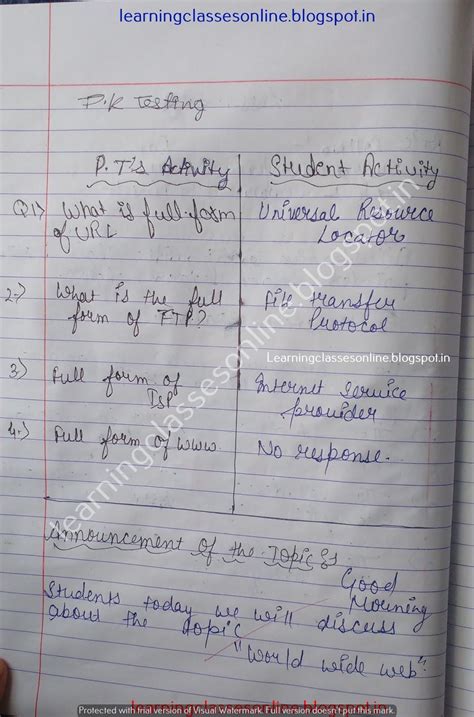 learningclassesonline.blogspot.in
P.K Testing
P.T's Activity
Student Activity
Q1) What is full-form of URL
Universal Resource Locator
2.) What is the full form of FTP?
File transfer Protocol
Learningclassesonline.blogspot.in
3.) Full form of ISP
Internet Service provider
4.) Full form of www
No response.
learningclassesonline.blogspot.in
Announcement of the Topic :-
Good Morning
Students today we will discuss
about the topic
"World wide web".
Protected with trial version of Visual Watermark. Full version doesn't put this mark.
learningclassesonline.blogspot.in